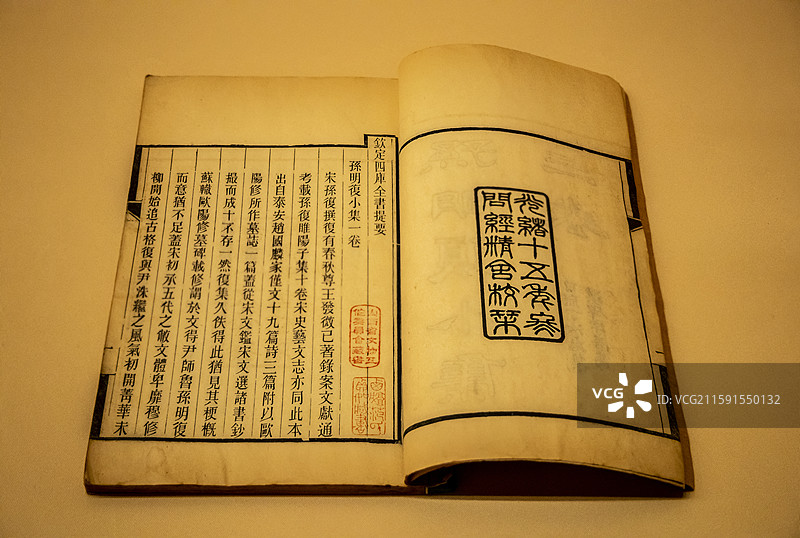 光緒十五年
問經精舍校栞
欽定四庫全書提要
孫明復小集一卷
宋孫復撰復有春秋尊王發微已著錄案文獻通
考載孫復睢陽子集十卷宋史藝文志亦同此本
出自泰安趙國麟家僅文十九篇詩三篇附以歐
陽修所作墓誌一篇蓋從宋文鑑宋文選諸書鈔
撮而成十不存一然復集久佚得此猶見其梗概
蘇轍歐陽修墓碑載修謂於文得尹師魯孫明復
而意猶不足蓋宋初承五代之敝文體卑靡穆修
柳開始追古格復與尹洙繼之風氣初開菁華未
VCG
ID: VCG211591550132